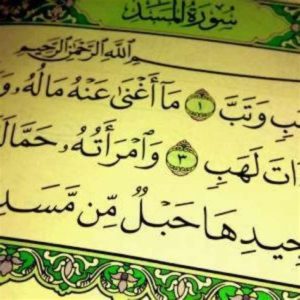 سُورَةُ المَسَدِ
بِسْمِ اللَّهِ الرَّحْمَٰنِ الرَّحِيمِ
وَتَبَّ ١ مَآ أَغْنَىٰ عَنْهُ مَالُهُۥ
لَهَبٍ ٣ وَٱمْرَأَتُهُۥ
حَبْلٌ مِّن مَّسَدٍ